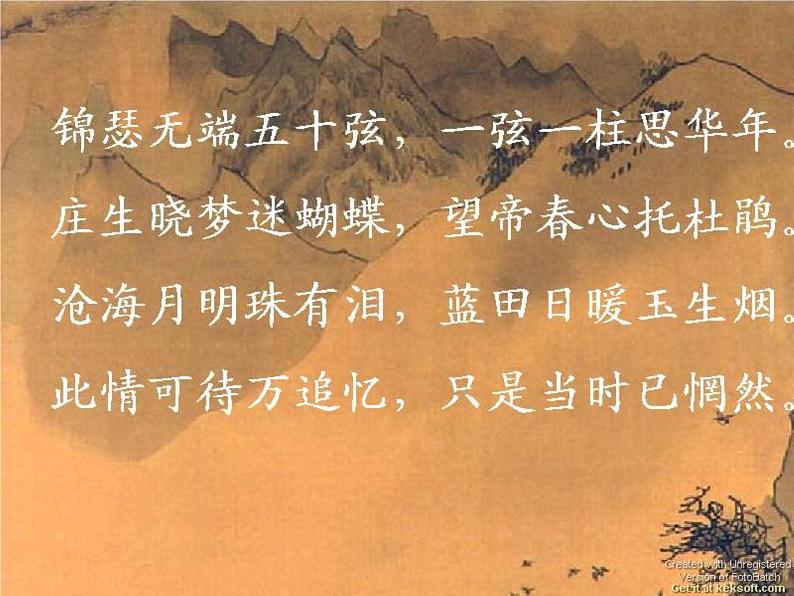 锦瑟无端五十弦，一弦一柱思华年。
庄生晓梦迷蝴蝶，望帝春心托杜鹃。
沧海月明珠有泪，蓝田日暖玉生烟。
此情可待万追忆，只是当时已惘然。
Created with Unregistered
Version of FotoBatch
Get it at keksoft.com